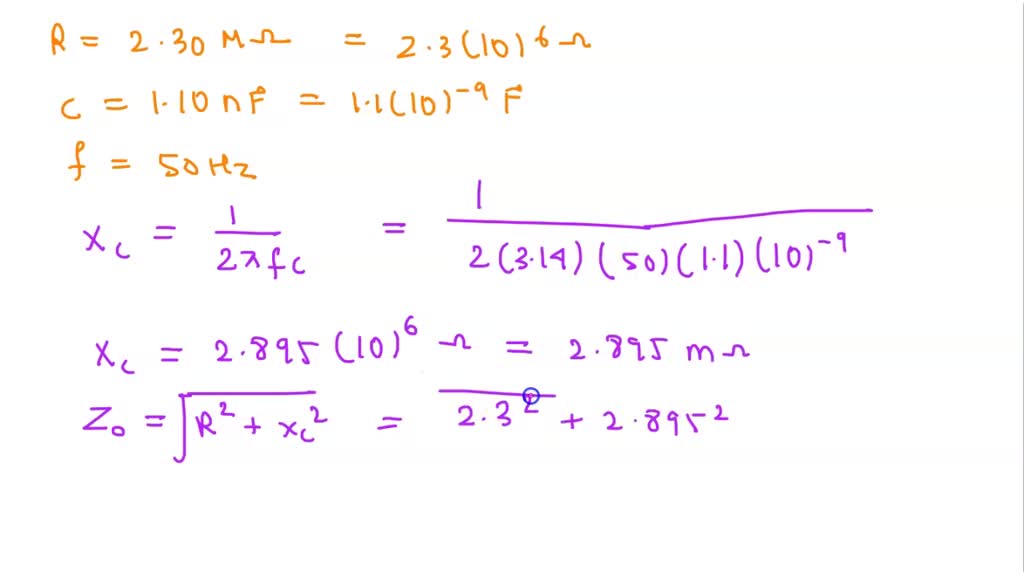 R = 2.30 MΩ = 2.3(10)⁶ Ω
C = 1.10 nF = 1.1(10)⁻⁹ F
f = 50Hz
Xc = 1/2πfc = 1/2(3.14)(50)(1.1)(10)⁻⁹
Xc = 2.895(10)⁶ Ω = 2.895 mΩ
Z₀ = √R² + Xc² = 2.3² + 2.895²